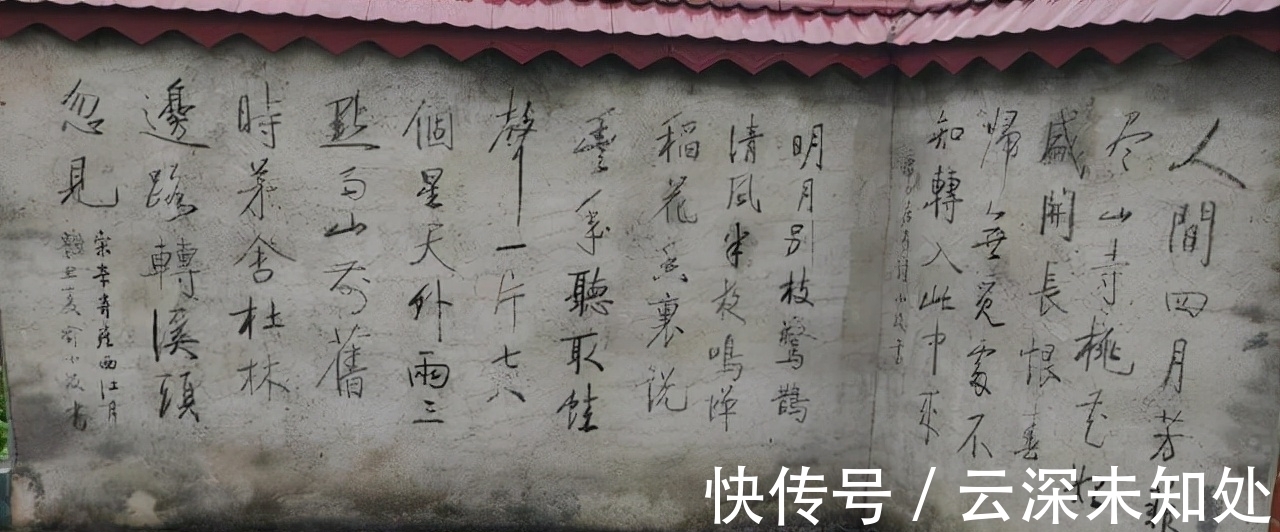 人間四月芳菲
尽山寺桃花始
盛開長恨春
歸無覓處不
知轉入此中來
白居易詩小波書
明月别枝驚鵲
清風半夜鳴蟬
稻花香裏说
豐年聽取蛙
聲一片七八
個星天外兩三
點雨山前舊
時茅舍杜林
邊路轉溪頭
忽見
宋辛弃疾西江月
丑夏喻小波书
快传号 / 云深未知处